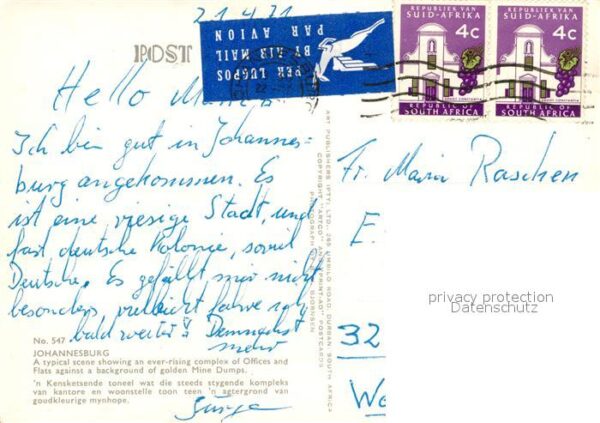 21.4.71
POST
PER LUGPOS
BY AIR MAIL
PAR AVION
REPUBLIEK VAN
SUID-AFRIKA
4c
REPUBLIC OF
SOUTH AFRICA
REPUBLIEK VAN
SUID-AFRIKA
4c
REPUBLIC OF
SOUTH AFRICA
Hello
Ich bin gut in Johannes=
burg angekommen. Es
ist eine riesige Stadt, und
fast deutsche Kolonie, soviel
Deutsche. Es gefällt mir nicht
besonders, vielleicht fahre ich
bald weiter. Demnächst
mehr
Jürgen
ART PUBLISHERS (PTY) LTD., DURBAN SOUTH AFRICA
COPYRIGHT "ARTCO" POSTCARDS
Fr. Maria Raschen
E.
32
privacy protection
Datenschutz
No. 547
JOHANNESBURG
A typical scene showing an ever-rising complex of Offices and
Flats against a background of golden Mine Dumps.
'n Kensketsende toneel wat die steeds stygende kompleks
van kantore en woonstelle toon teen 'n agtergrond van
goudkleurige mynhope.